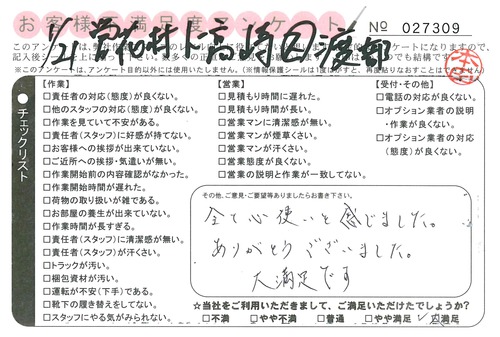 お客様満足度アンケート
№ 027309
1/21
渡部
【作業】
□責任者の対応(態度)が良くない。
□他のスタッフの対応(態度)が良くない。
□作業を見ていて不安がある。
□責任者(スタッフ)に好感が持てない。
□お客様への挨拶が出来ていない。
□ご近所への挨拶・気遣いが無い。
□作業開始前の内容確認がなかった。
□作業開始時間が遅れた。
□荷物の取り扱いが雑である。
□お部屋の養生が出来ていない。
□作業時間が長すぎる。
□責任者(スタッフ)に清潔感が無い。
□責任者(スタッフ)が汗くさい。
□トラックが汚い。
□梱包資材が汚い。
□運転が不安(下手)である。
□靴下の履き替えをしてない。
□スタッフにやる気がみられない。
【営業】
□見積もり時間に遅れた。
□見積もり時間が長い。
□営業マンに清潔感が無い。
□営業マンが煙草くさい。
□営業マンが汗くさい。
□営業態度が良くない。
□営業の説明と作業が一致してない。
【受付・その他】
□電話の対応が良くない。
□オプション業者の説明
・作業が良くない。
□オプション業者の対応
(態度)が良くない。
チェックリスト
その他、ご意見・ご要望等ありましたらお書き下さい。
全て心使いと感じました。
ありがとうございました。
大満足です
☆当社をご利用いただきまして、ご満足いただけたでしょうか?
□不満 □やや不満 □普通 □やや満足 □満足